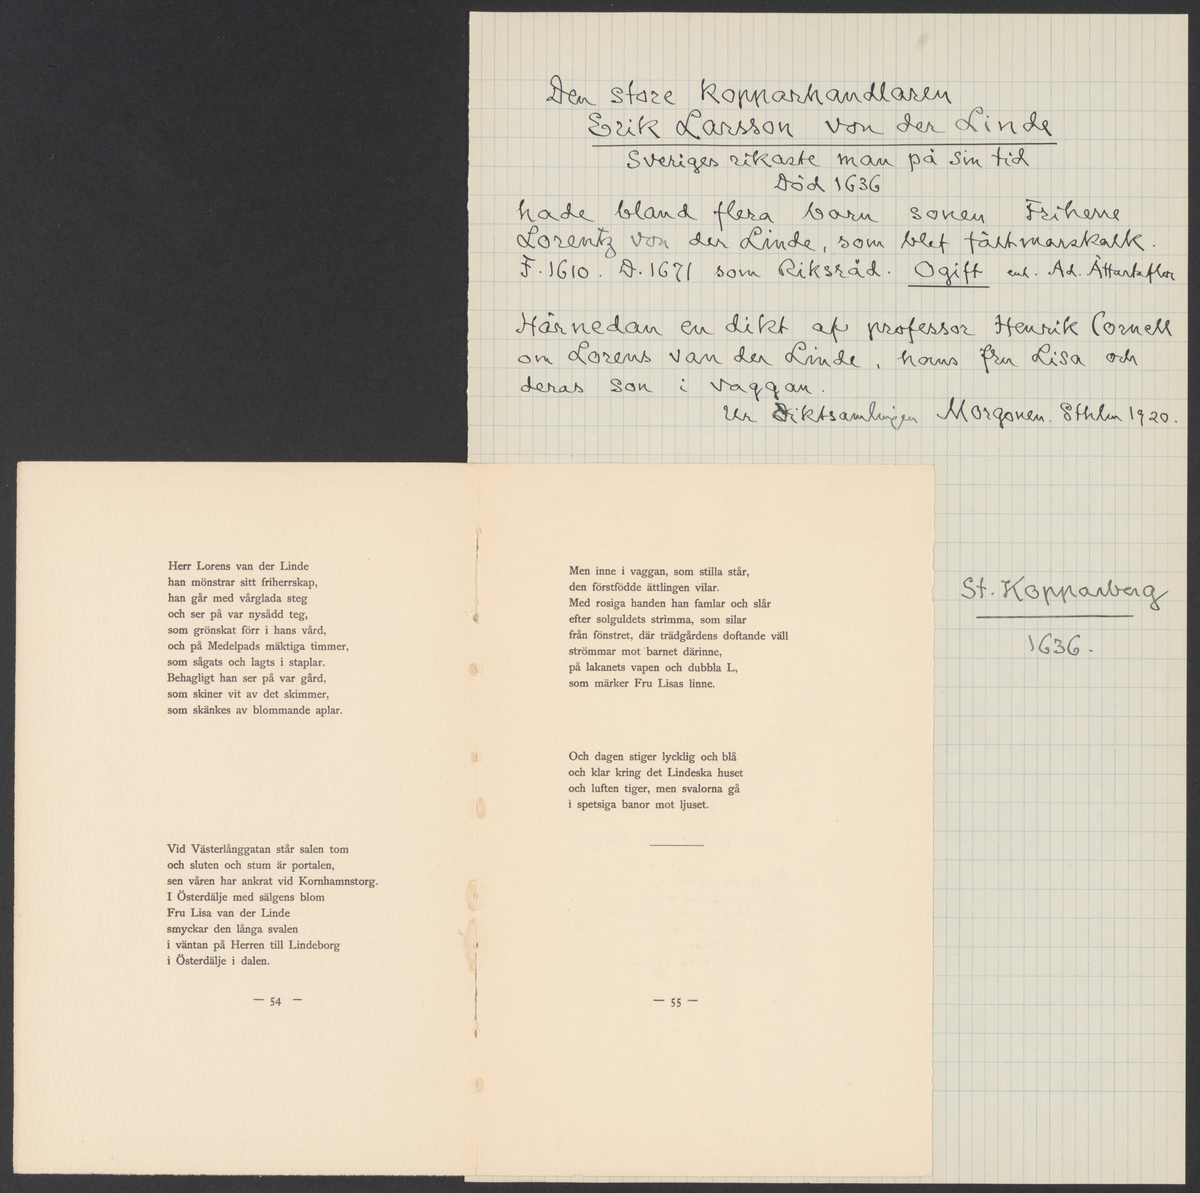 Den store Kopparhandlaren
Erik Larsson von der Linde
Sveriges rikaste man på sin tid
Död 1636
hade bland flera barn sonen Friherre
Lorentz von der Linde, som blef fältmarskalk.
F. 1610. D. 1671 som Riksråd. Ogift enl. Ad. Ättartaflor
Härnedan en dikt af professor Henrik Cornell
om Lorens van der Linde, hans fru Lisa och
deras son i vaggan.
Ur Diktsamlingen Morgonen. Sthlm 1920.
St. Kopparberg
1636.
Herr Lorens van der Linde
han mönstrar sitt friherrskap,
han går med vårglada steg
och ser på var nysådd teg,
som grönskat förr i hans vård,
och på Medelpads mäktiga timmer,
som sågats och lagts i staplar.
Behagligt han ser på var gård,
som skiner vit av det skimmer,
som skänkes av blommande aplar.
Vid Västerlånggatan står salen tom
och sluten och stum är portalen,
sen våren har ankrat vid Kornhamnstorg.
I Österdälje med sälgens blom
Fru Lisa van der Linde
smyckar den långa svalen
i väntan på Herren till Lindeborg
i Österdälje i dalen.
— 54 —
Men inne i vaggan, som stilla står,
den förstfödde ättlingen vilar.
Med rosiga handen han famlar och slår
efter solguldets strimma, som silar
från fönstret, där trädgårdens doftande väll
strömmar mot barnet därinne,
på lakanets vapen och dubbla L,
som märker Fru Lisas linne.
Och dagen stiger lycklig och blå
och klar kring det Lindeska huset
och luften tiger, men svalorna gå
i spetsiga banor mot ljuset.
— 55 —